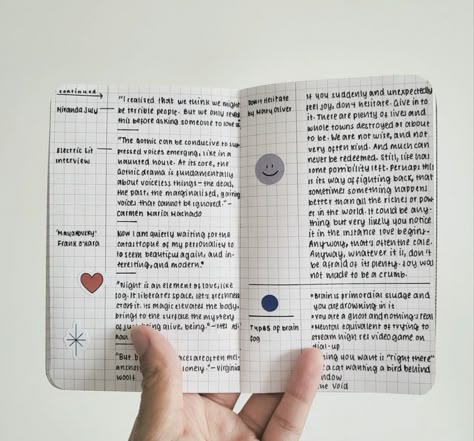 continued
Miranda July
"I realised that we think we might
be terrible people. But we only reveal
this before asking someone to love us
Electric Lit
interview
"The Gothic can be conducive to sup
pressed voices emerging, like in a
haunted house. At its core, the
Gothic drama is fundamentally
about voiceless things – the dead,
the past, the marginalised, giving
voices that cannot be ignored." –
Carmen Maria Machado
"Mayakovsky"
Frank O'Hara
Now I am quietly waiting for the
catastrophe of my personality to
to seem beautiful again, and in-
teresting, and modern."
"Night is an element of love, like
fog. It liberates space, lets
cross it. Its magic activates the body,
brings to the surface the mystery
of being alive, being." –
"But
Virginia
Woolf
Don't Hesitate
by Mary Oliver
If you suddenly and unexpectedly
feel joy, don't hesitate. Give in to
it. There are plenty of lives and
whole towns destroyed or about
to be. We are not wise, and not
very often kind. And much can
never be redeemed. Still, life has
some possibility left. Perhaps this
is its way of fighting back, that
sometimes something happens
better than all the riches or pow
er in the world. It could be any-
thing but very likely you notice
it in the instance love begins.
Anyway, that's often the case.
Anyway, whatever it is, don't
be afraid of its plenty. Joy was
not made to be a crumb.
Types of brain
fog
• Brain is primordial sludge and
you are drowning in it
• You are a ghost and nothing's real
• Mental equivalent of trying to
stream high res video game on
dial-up
thing you want is "right there"
a cat wanting a bird behind
window
the void